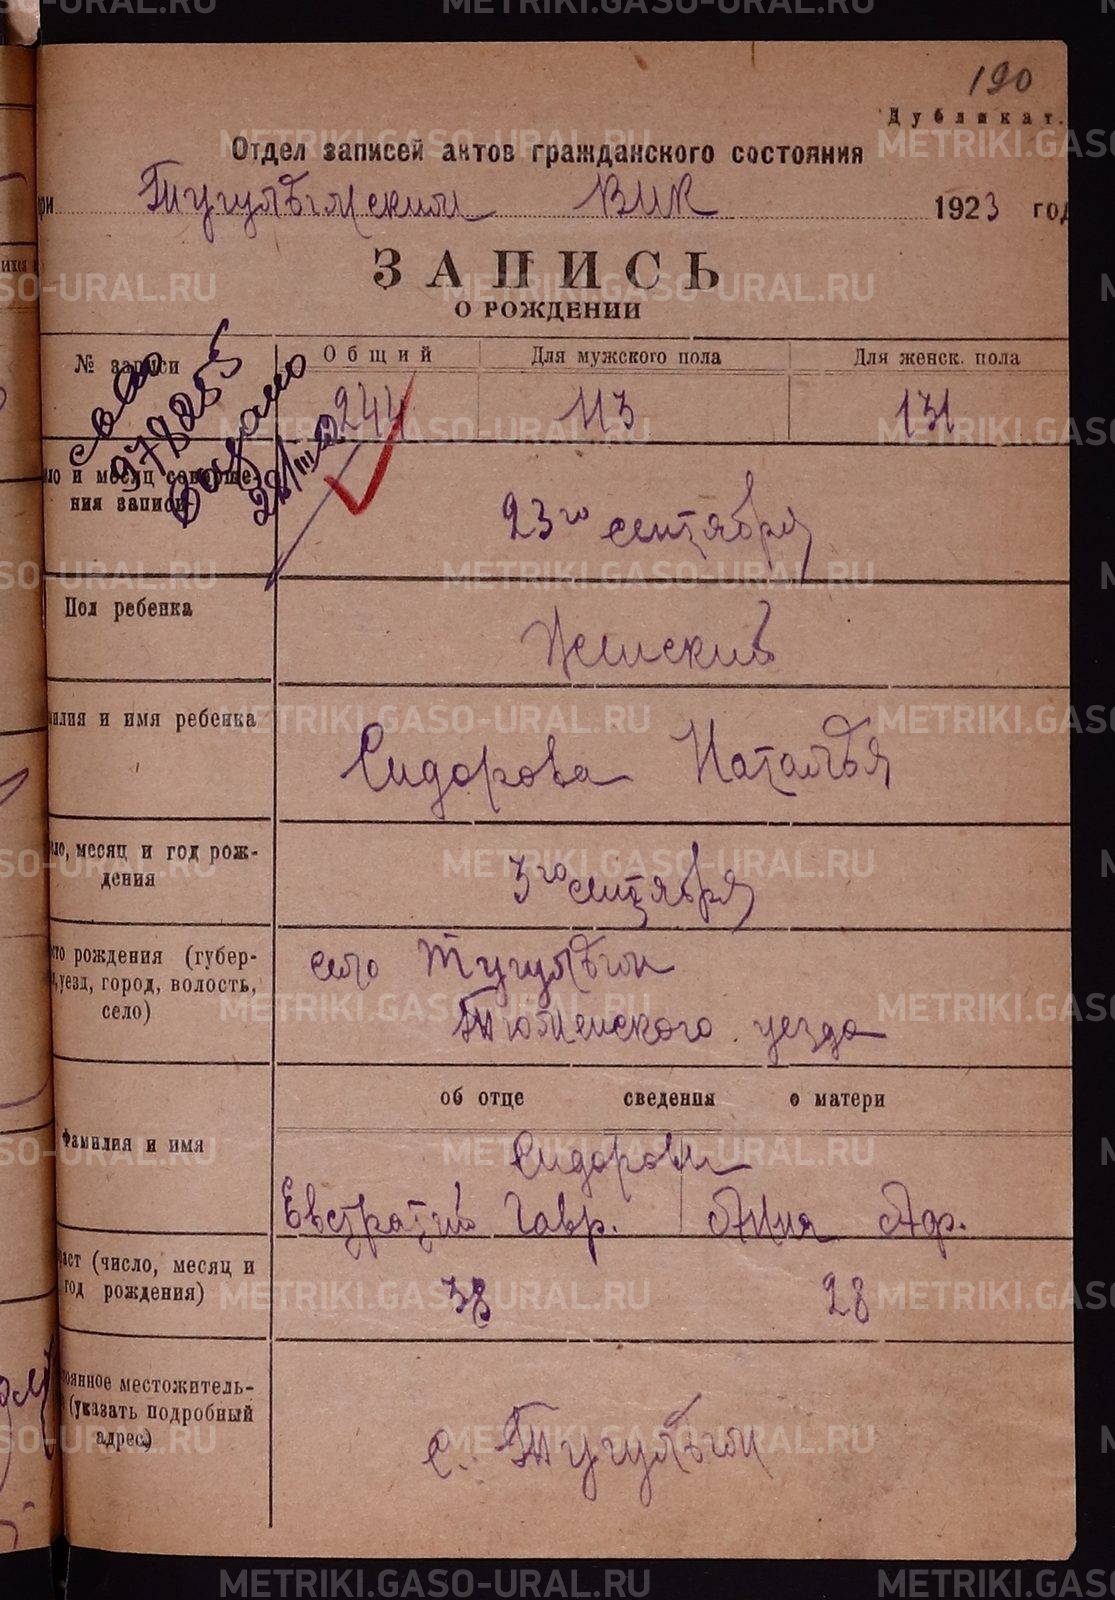 190
Дубликат.
Отдел записей актов гражданского состояния
при Тугулымском ВИК 1923 год
ЗАПИСЬ
О РОЖДЕНИИ
№ записи
Общий Для мужского пола Для женск. пола
244 113 131
978255
Выдано
28/III
ло и месяц соверше-
ния записи
23го сентября
Пол ребенка
Женский
милия и имя ребенка
Сидорова Наталья
ло, месяц и год рож-
дения
3го сентября
то рождения (губер-
, уезд, город, волость,
село)
село Тугулым
Тюменского уезда
об отце сведения о матери
Фамилия и имя
Сидоровы
Евстратий Гавр. Анна Аф.
аст (число, месяц и
год рождения)
38 28
тоянное местожитель-
(указать подробный
адрес)
с. Тугулым
METRIKI.GASO-URAL.RU